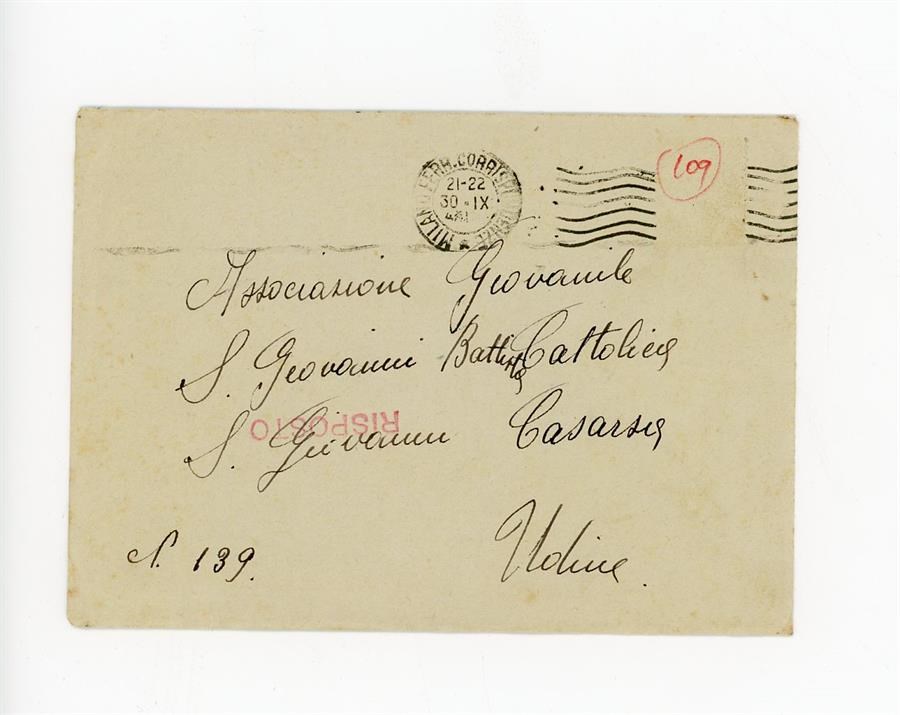 MILANO FERR. CORRISPONDENZE
21-22
30·IX
109
Associazione Giovanile
S. Giovanni Battista Cattolica
RISPOSTO
S. Giovanni Casarsa
N. 139.
Udine.